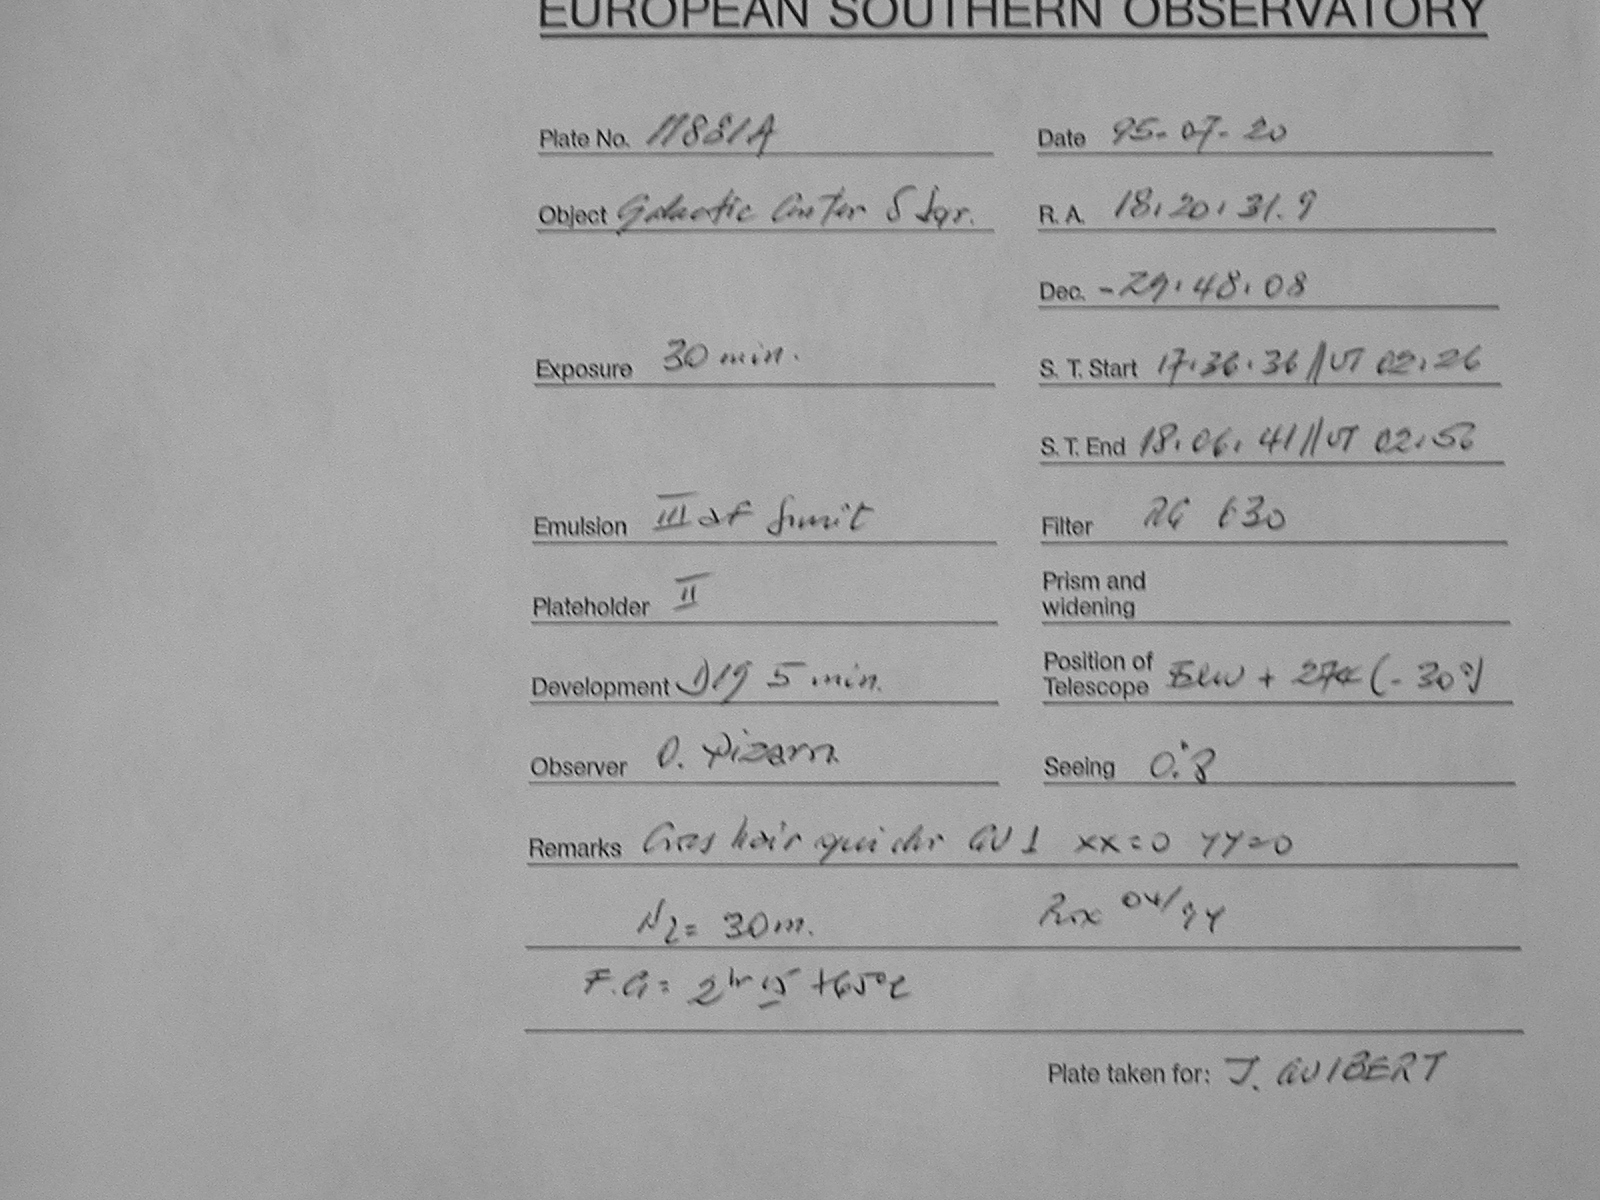 EUROPEAN SOUTHERN OBSERVATORY
Plate No. 11881A Date 95-07-20
Object Galactic Center S Sgr. R. A. 18.20.31.9
Dec. -29.48.08
Exposure 30 min. S. T. Start 17.36.36 // UT 02.26
S. T. End 18.06.41 // UT 02.56
Emulsion III aF Filter RG 630
Plateholder II Prism and
widening
Development D19 5 min. Position of
Telescope + 274 (-30°)
Observer O. Pizarro Seeing 0".8
Remarks Cros hair GU 1 XX=0 YY=0
N2= 30m. 04/94
F.G= 2hr 15 +65°C
Plate taken for: J. GUIBERT